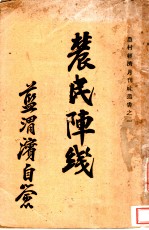 農村經濟月刊社叢書之一
農民陣綫
藍渭濱自簽